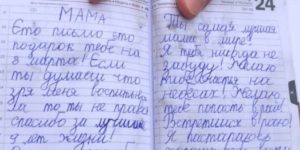 24
МАМА
Ето письмо ето
подарок тебе на
8 марта! Если
ты думаеш что
зря меня воспитывала
То ты не права
спасибо за лучшие
9 лет жизни!
Ты самая лучшая
мама в мире!
Я тебя никогда не
забуду! Желаю
на
небесах! Желаю
тебе попасть в рай!
Встретимся в раю!
Я постараюсь